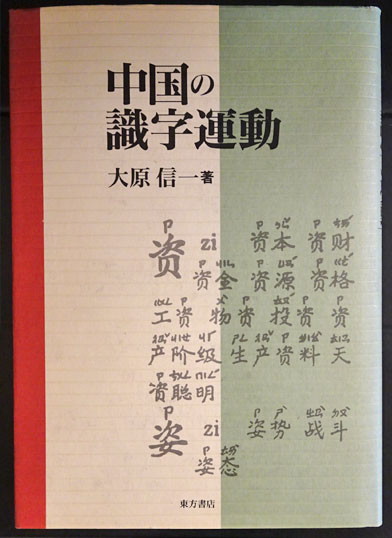 中国の
識字運動
大原信一著
资 zi 资本 资财
资金 资源 资格
工资 物资 投资 资
产阶级 生产资料 天
资聪明
姿 zi 姿势 战斗
姿态
東方書店